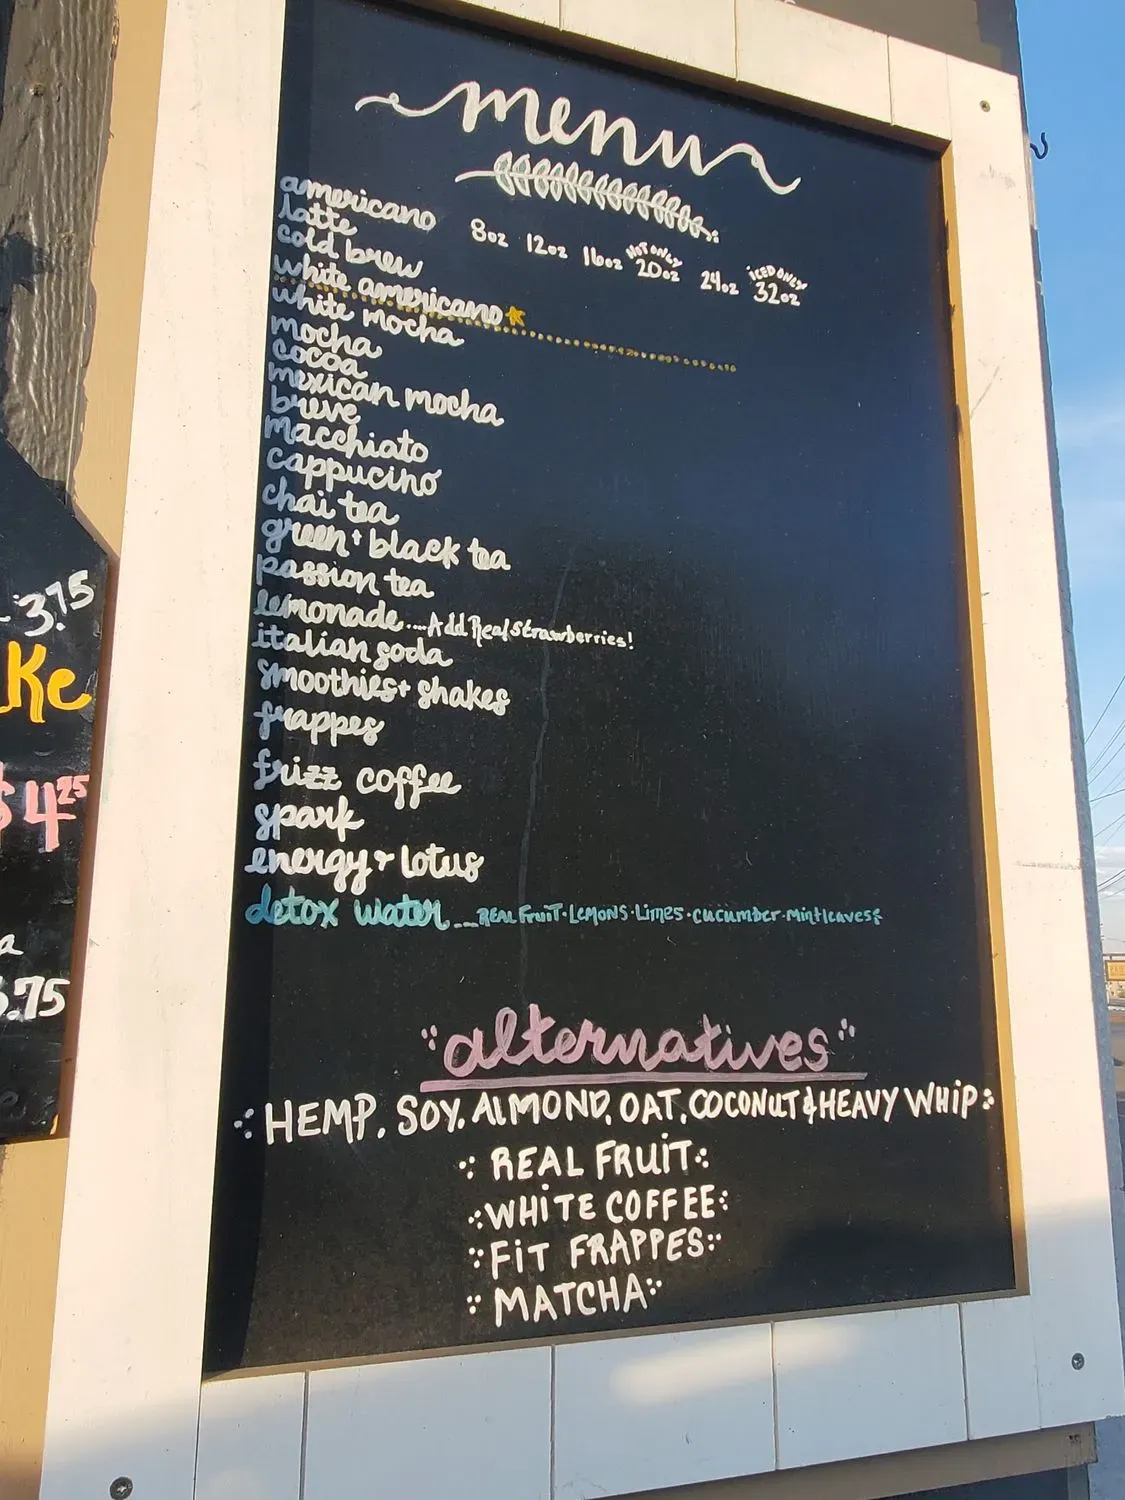 menu
americano
latte
8oz 12oz 16oz HOT ONLY 20oz 24oz ICED ONLY 32oz
cold brew
white americano
white mocha
mocha
cocoa
mexican mocha
breve
macchiato
cappucino
chai tea
green + black tea
passion tea
lemonade....Add Real Strawberries!
italian soda
smoothies + shakes
frappes
frizz coffee
spark
energy + lotus
detox water...REAL FRUIT·LEMONS·Limes·cucumber·mint leaves
"alternatives"
HEMP. SOY. ALMOND, OAT, COCONUT & HEAVY WHIP
REAL FRUIT
WHITE COFFEE
FIT FRAPPES
MATCHA
3.75
Ke
$4.25
a
.75